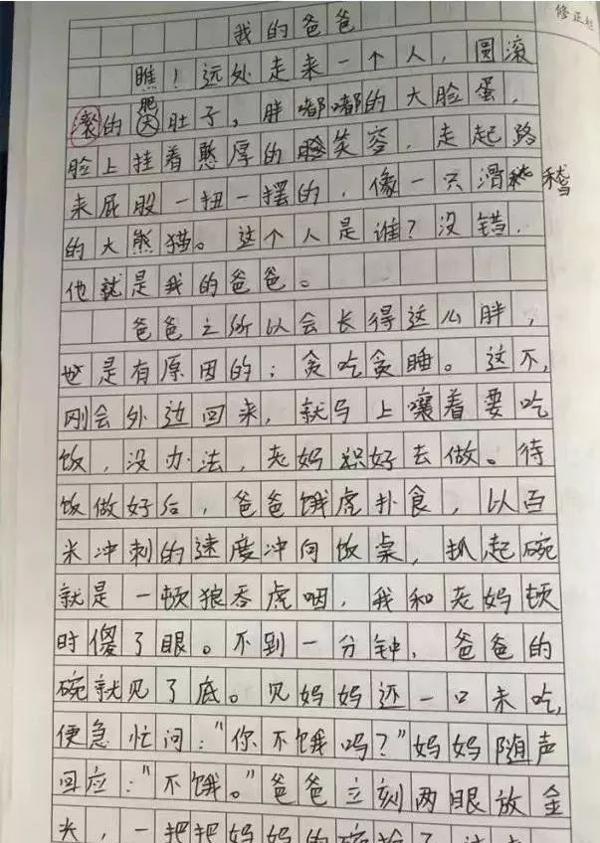 修正
我的爸爸
瞧！远处走来一个人，圆滚
滚的肥大肚子，胖嘟嘟的大脸蛋，
脸上挂着憨厚的笑容，走起路
来屁股一扭一摆的，像一只滑稽
的大熊猫。这个人是谁？没错，
他就是我的爸爸。
爸爸之所以会长得这么胖，
也是有原因的：贪吃贪睡。这不，
刚会外边回来，就马上嚷着要吃
饭，没办法，老妈只好去做。待
饭做好后，爸爸饿虎扑食，以百
米冲刺的速度冲向饭桌，扒起碗
就是一顿狼吞虎咽，我和老妈顿
时傻了眼。不到一分钟，爸爸的
碗就见了底。见妈妈还一口未吃，
便急忙问：“你不饿吗？”妈妈随声
回应：“不饿。”爸爸立刻两眼放金
光，一把把妈妈的碗抢了过去